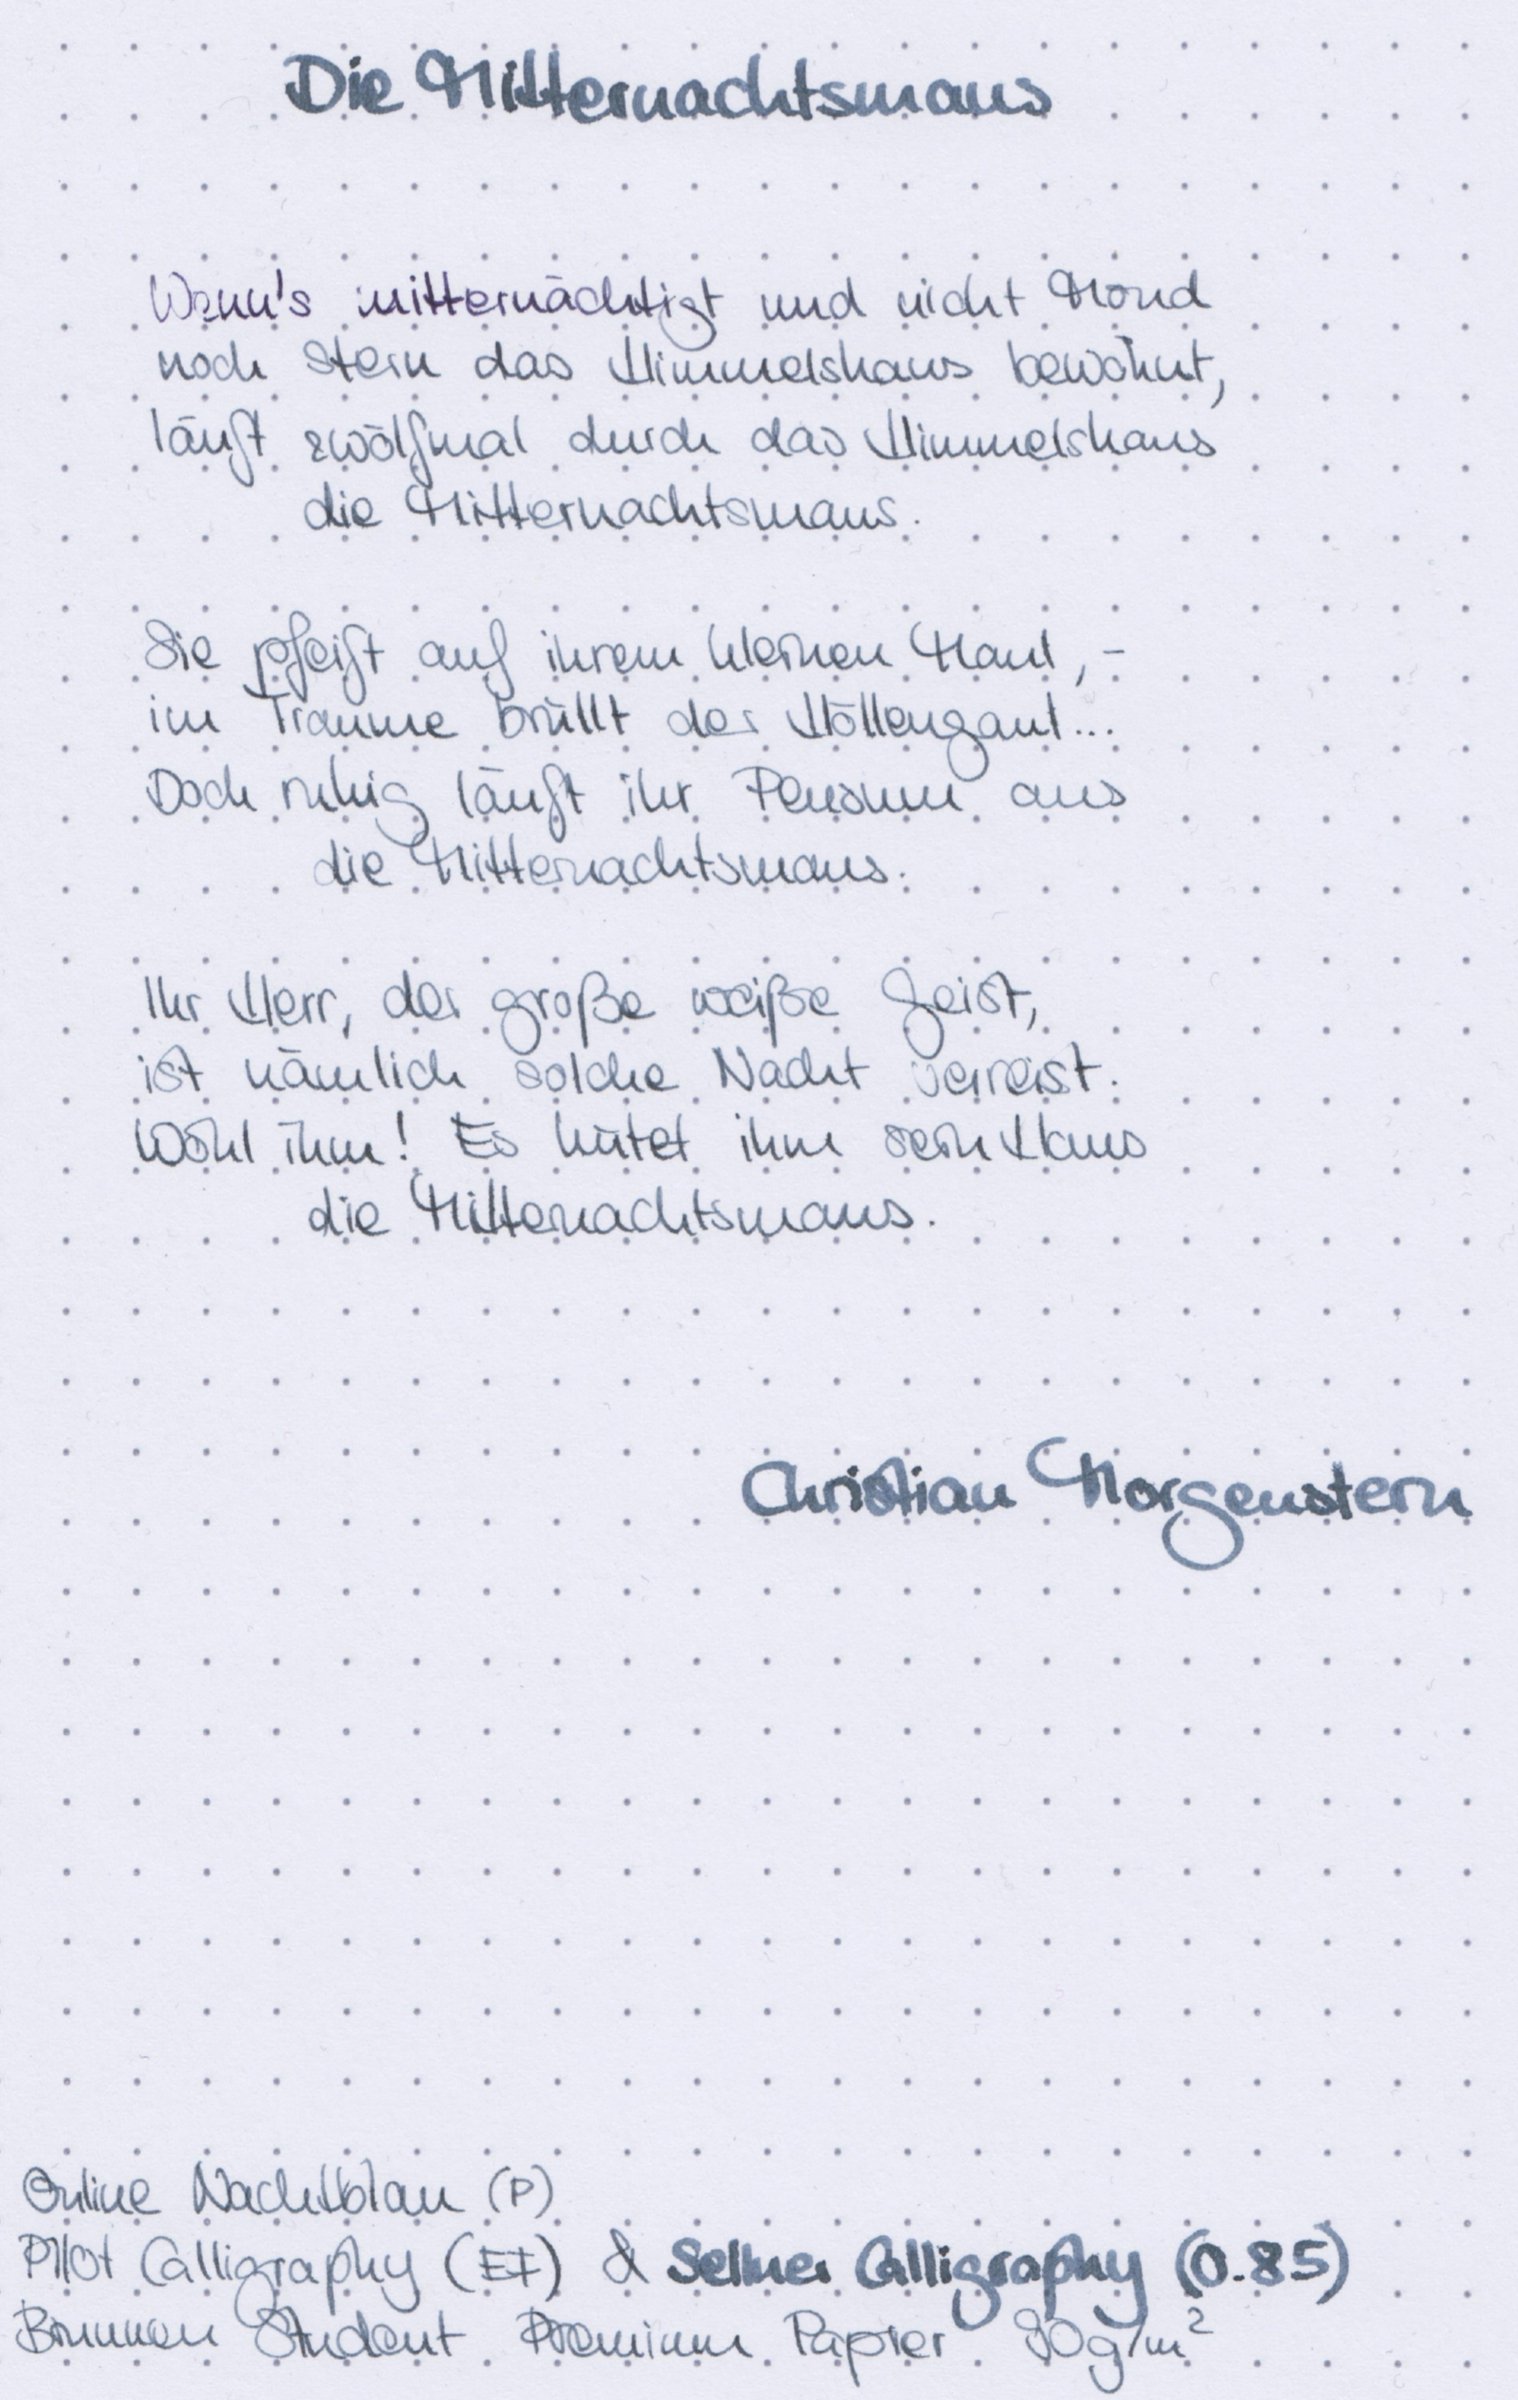 Die Mitternachtsmaus
Wenn's mitternächtigt und nicht Mond
noch Stern das Himmelshaus bewohnt,
läuft zwölfmal durch das Himmelshaus
die Mitternachtsmaus.
Sie pfeift auf ihrem kleinen Maul, -
im Traume brüllt der Höllengaul...
Doch ruhig läuft ihr Pensum aus
die Mitternachtsmaus.
Ihr Herr, der große weiße Geist,
ist nämlich solche Nacht verreist.
Wohl ihm! Es hütet ihm sein Haus
die Mitternachtsmaus.
Christian Morgenstern
Online Nachtblau (P)
Pilot Calligraphy (EF) & Sellner Calligraphy (0.85)
Brunnen Student Premium Papier 90g/m²